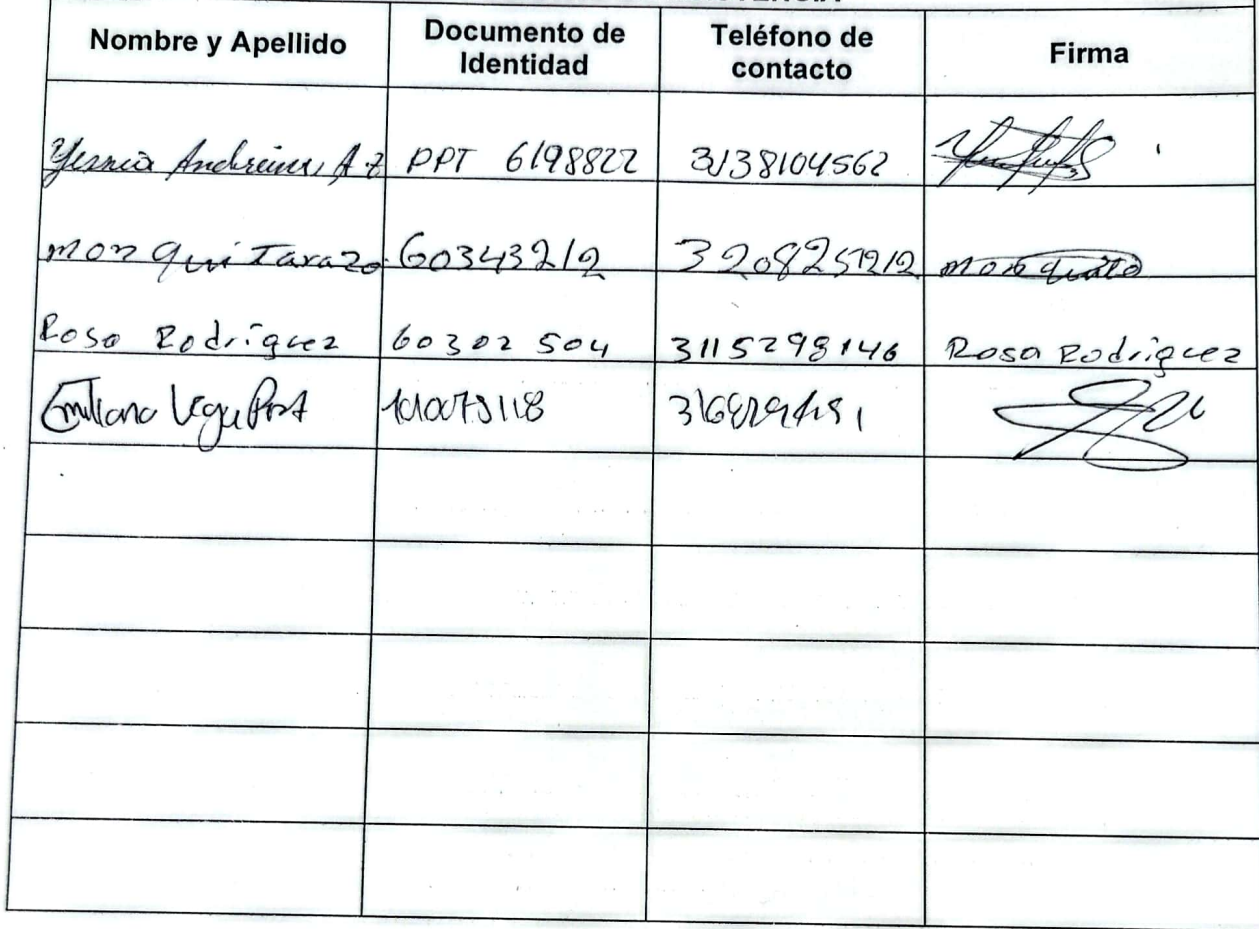 Nombre y Apellido
Documento de
Identidad
Teléfono de
contacto
Firma
Andreina A Z PPT 6198822 3138104562
mon qui Tarazo 60343212 3208251212
Rosa Rodríguez 60302 504 3115298146 Rosa Rodríguez
Emiliano Vega